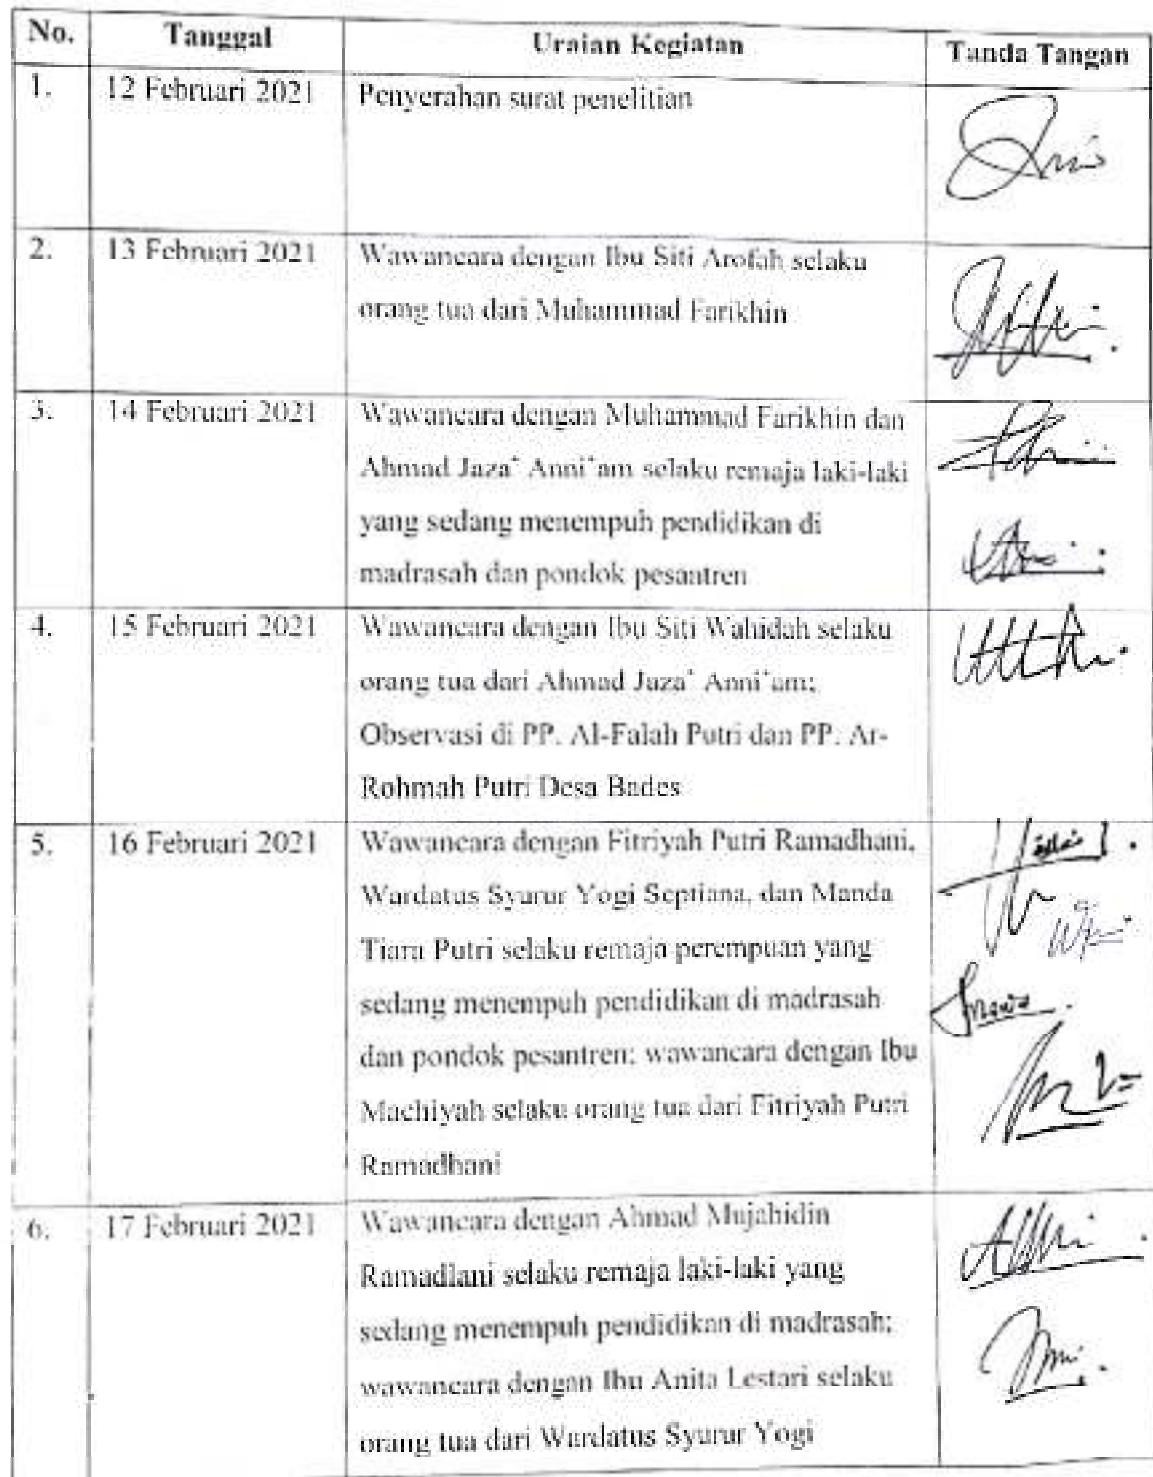 No. Tanggal Uraian Kegiatan Tanda Tangan
1. 12 Februari 2021 Penyerahan surat penelitian
2. 13 Februari 2021 Wawancara dengan Ibu Siti Arofah selaku
orang tua dari Muhammad Farikhin
3. 14 Februari 2021 Wawancara dengan Muhammad Farikhin dan
Ahmad Jaza' Anni'am selaku remaja laki-laki
yang sedang menempuh pendidikan di
madrasah dan pondok pesantren
4. 15 Februari 2021 Wawancara dengan Ibu Siti Wahidah selaku
orang tua dari Ahmad Jaza' Anni'am;
Observasi di PP. Al-Falah Putri dan PP. Ar-
Rohmah Putri Desa Bades
5. 16 Februari 2021 Wawancara dengan Fitriyah Putri Ramadhani,
Wardatus Syurur Yogi Septiana, dan Manda
Tiara Putri selaku remaja perempuan yang
sedang menempuh pendidikan di madrasah
dan pondok pesantren; wawancara dengan Ibu
Machiyah selaku orang tua dari Fitriyah Putri
Ramadhani
6. 17 Februari 2021 Wawancara dengan Ahmad Mujahidin
Ramadlani selaku remaja laki-laki yang
sedang menempuh pendidikan di madrasah;
wawancara dengan Ibu Anita Lestari selaku
orang tua dari Wardatus Syurur Yogi